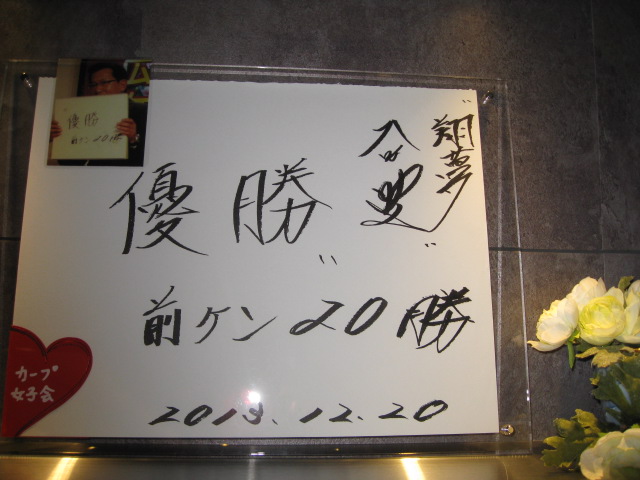 "翔夢
優勝"
前ケン20勝
2013.12.20
カープ
女子会
"優勝
前ケン20勝